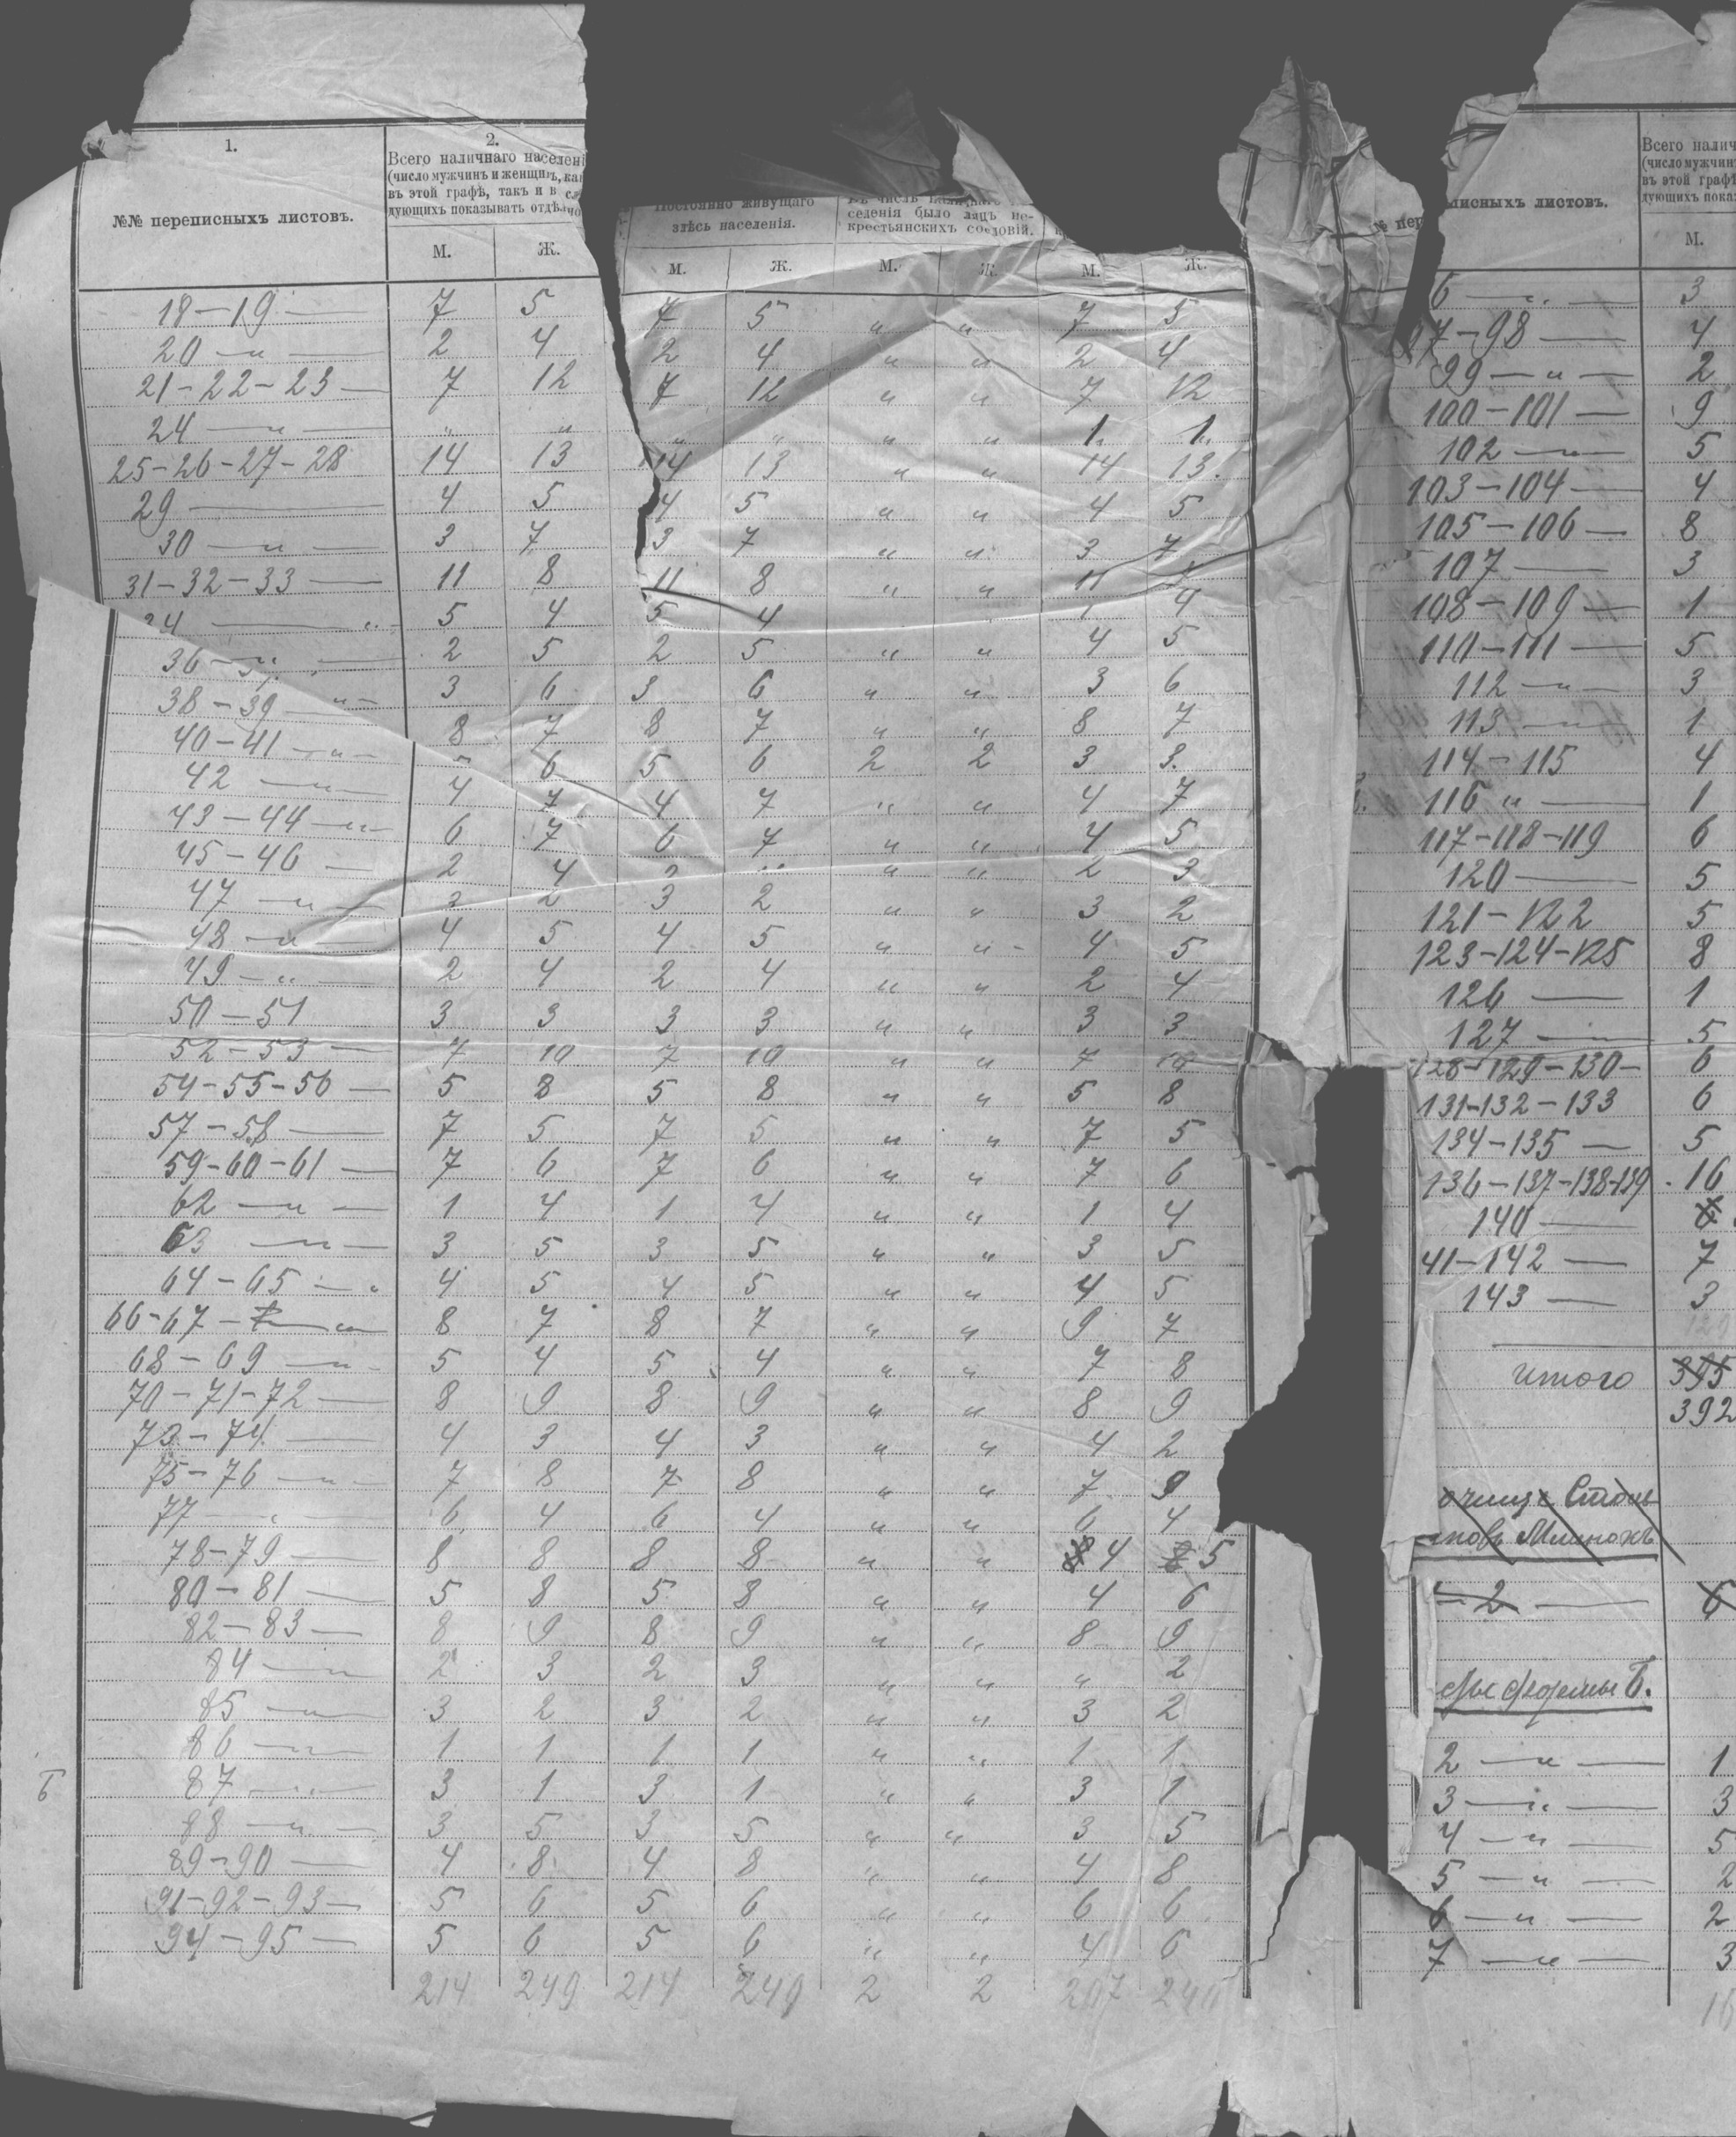 1.
2.
Всего наличнаго населені
(число мужчинъ и женщинъ, ка
въ этой графѣ, такъ и в слѣ
дующихъ показывать отдѣльно
№№ переписныхъ листовъ.
М. Ж.
Постоянно живущаго
здѣсь населенія.
селенія было лицъ не-
крестьянскихъ сословій.
М. Ж. М. Ж. М. Ж.
18-19 — 7 5 7 5 " " 7 5
20 — " — 2 4 2 4 " " 2 4
21-22-23 — 7 12 7 12 " " 7 12
24 — " — " " " " " " 1 1
25-26-27-28 14 13 14 13 " " 14 13.
29 — 4 5 4 5 " " 4 5
30 — " — 3 7 3 7 " " 3 7
31-32-33 — 11 8 11 8 " " 11
5 4 5 4 4
36 — 2 5 2 5 " " 4 5
38-39 — " — 3 6 3 6 " " 3 6
40-41 — " — 8 7 8 7 " " 8 7
42 — " — 6 5 6 2 2 3 3.
43-44 — " — 4 7 4 7 " " 4 7
45-46 — 6 7 6 7 " " 4 5
47 — " — 2 4 " " 2 3
48 — " — 3 2 3 2 " " 3 2
49 — " — 4 5 4 5 " " 4 5
50-51 2 4 2 4 " " 2 4
52-53 — 3 3 3 3 " " 3 3
54-55-56 — 7 10 7 10 " " 7 10
57-58 — 5 8 5 8 " " 5 8
59-60-61 — 7 5 7 5 " " 7 5
62 — " — 7 6 7 6 " " 7 6
63 — " — 1 4 1 4 " " 1 4
64-65 — " 3 5 3 5 " " 3 5
66-67 — 4 5 4 5 " " 4 5
68-69 — " — 8 7 8 7 " " 9 7
70-71-72 — 5 4 5 4 " " 7 8
73-74 — 8 9 8 9 " " 8 9
75-76 — " — 4 3 4 3 " " 4 2
77 — " — 7 8 7 8 " " 7 9
78-79 — 6 4 6 4 " " 6 4
80-81 — 8 8 8 8 " " 4 5
82-83 — 5 8 5 8 " " 4 6
84 — " 8 9 8 9 " " 8 9
85 — " — 2 3 2 3 " " " 2
86 — " — 3 2 3 2 " " 3 2
87 — " — 1 1 1 1 " " 1 1
Б
88 — " — 3 1 3 1 " " 3 1
89-90 — 3 5 3 5 " " 3 5
91-92-93 — 4 8 4 8 " " 4 8
94-95 — 5 6 5 6 " " 6 6
5 6 5 6 " " 4 6
214 249 214 249 2 2 207 240
писныхъ листовъ.
Всего налич
(число мужчинъ
въ этой графѣ
дующихъ показ
М.
6 — " — 3
97-98 — 4
99 — " — 2
100-101 — 9
102 — " — 5
103-104 — 4
105-106 — 8
107 — 3
108-109 — 1
110-111 — 5
112 — " — 3
113 — " — 1
114-115 4
116 " — 1
117-118-119 6
120 — 5
121-122 5
123-124-125 8
126 — 1
127 — " — 5
128-129-130 — 6
131-132-133 6
134-135 — 5
136-137-138-139 16
140 — 6
41-142 — 7
143 — 3
итого 395
392
— 2 — 6
формы Б.
2 — " — 1
3 — " — 3
4 — " — 5
5 — " — 2
6 — " — 2
7 — " — 3
16